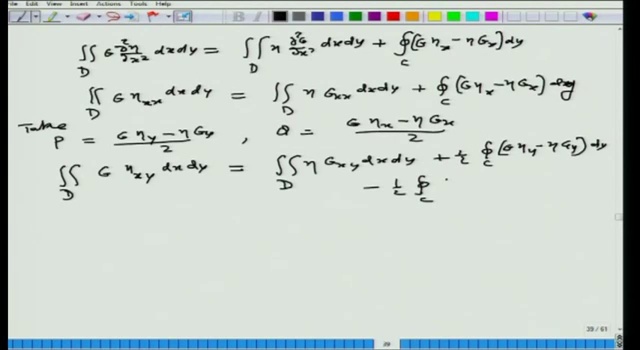 File Edit View Insert Actions Tools Help
∬_D G ∂²η/∂x² dxdy = ∬_D η ∂²G/∂x² dxdy + ∮_C (Gη_x − ηG_x) dy
∬_D G η_xx dxdy = ∬_D η G_xx dxdy + ∮_C (Gη_x − ηG_x) dy
Take P = (Gη_y − ηG_y)/2 , Q = (Gη_x − ηG_x)/2
∬_D G η_xy dxdy = ∬_D η G_xy dxdy + ½ ∮_C (Gη_y − ηG_y) dy
− ½ ∮_C
29 / 61
29